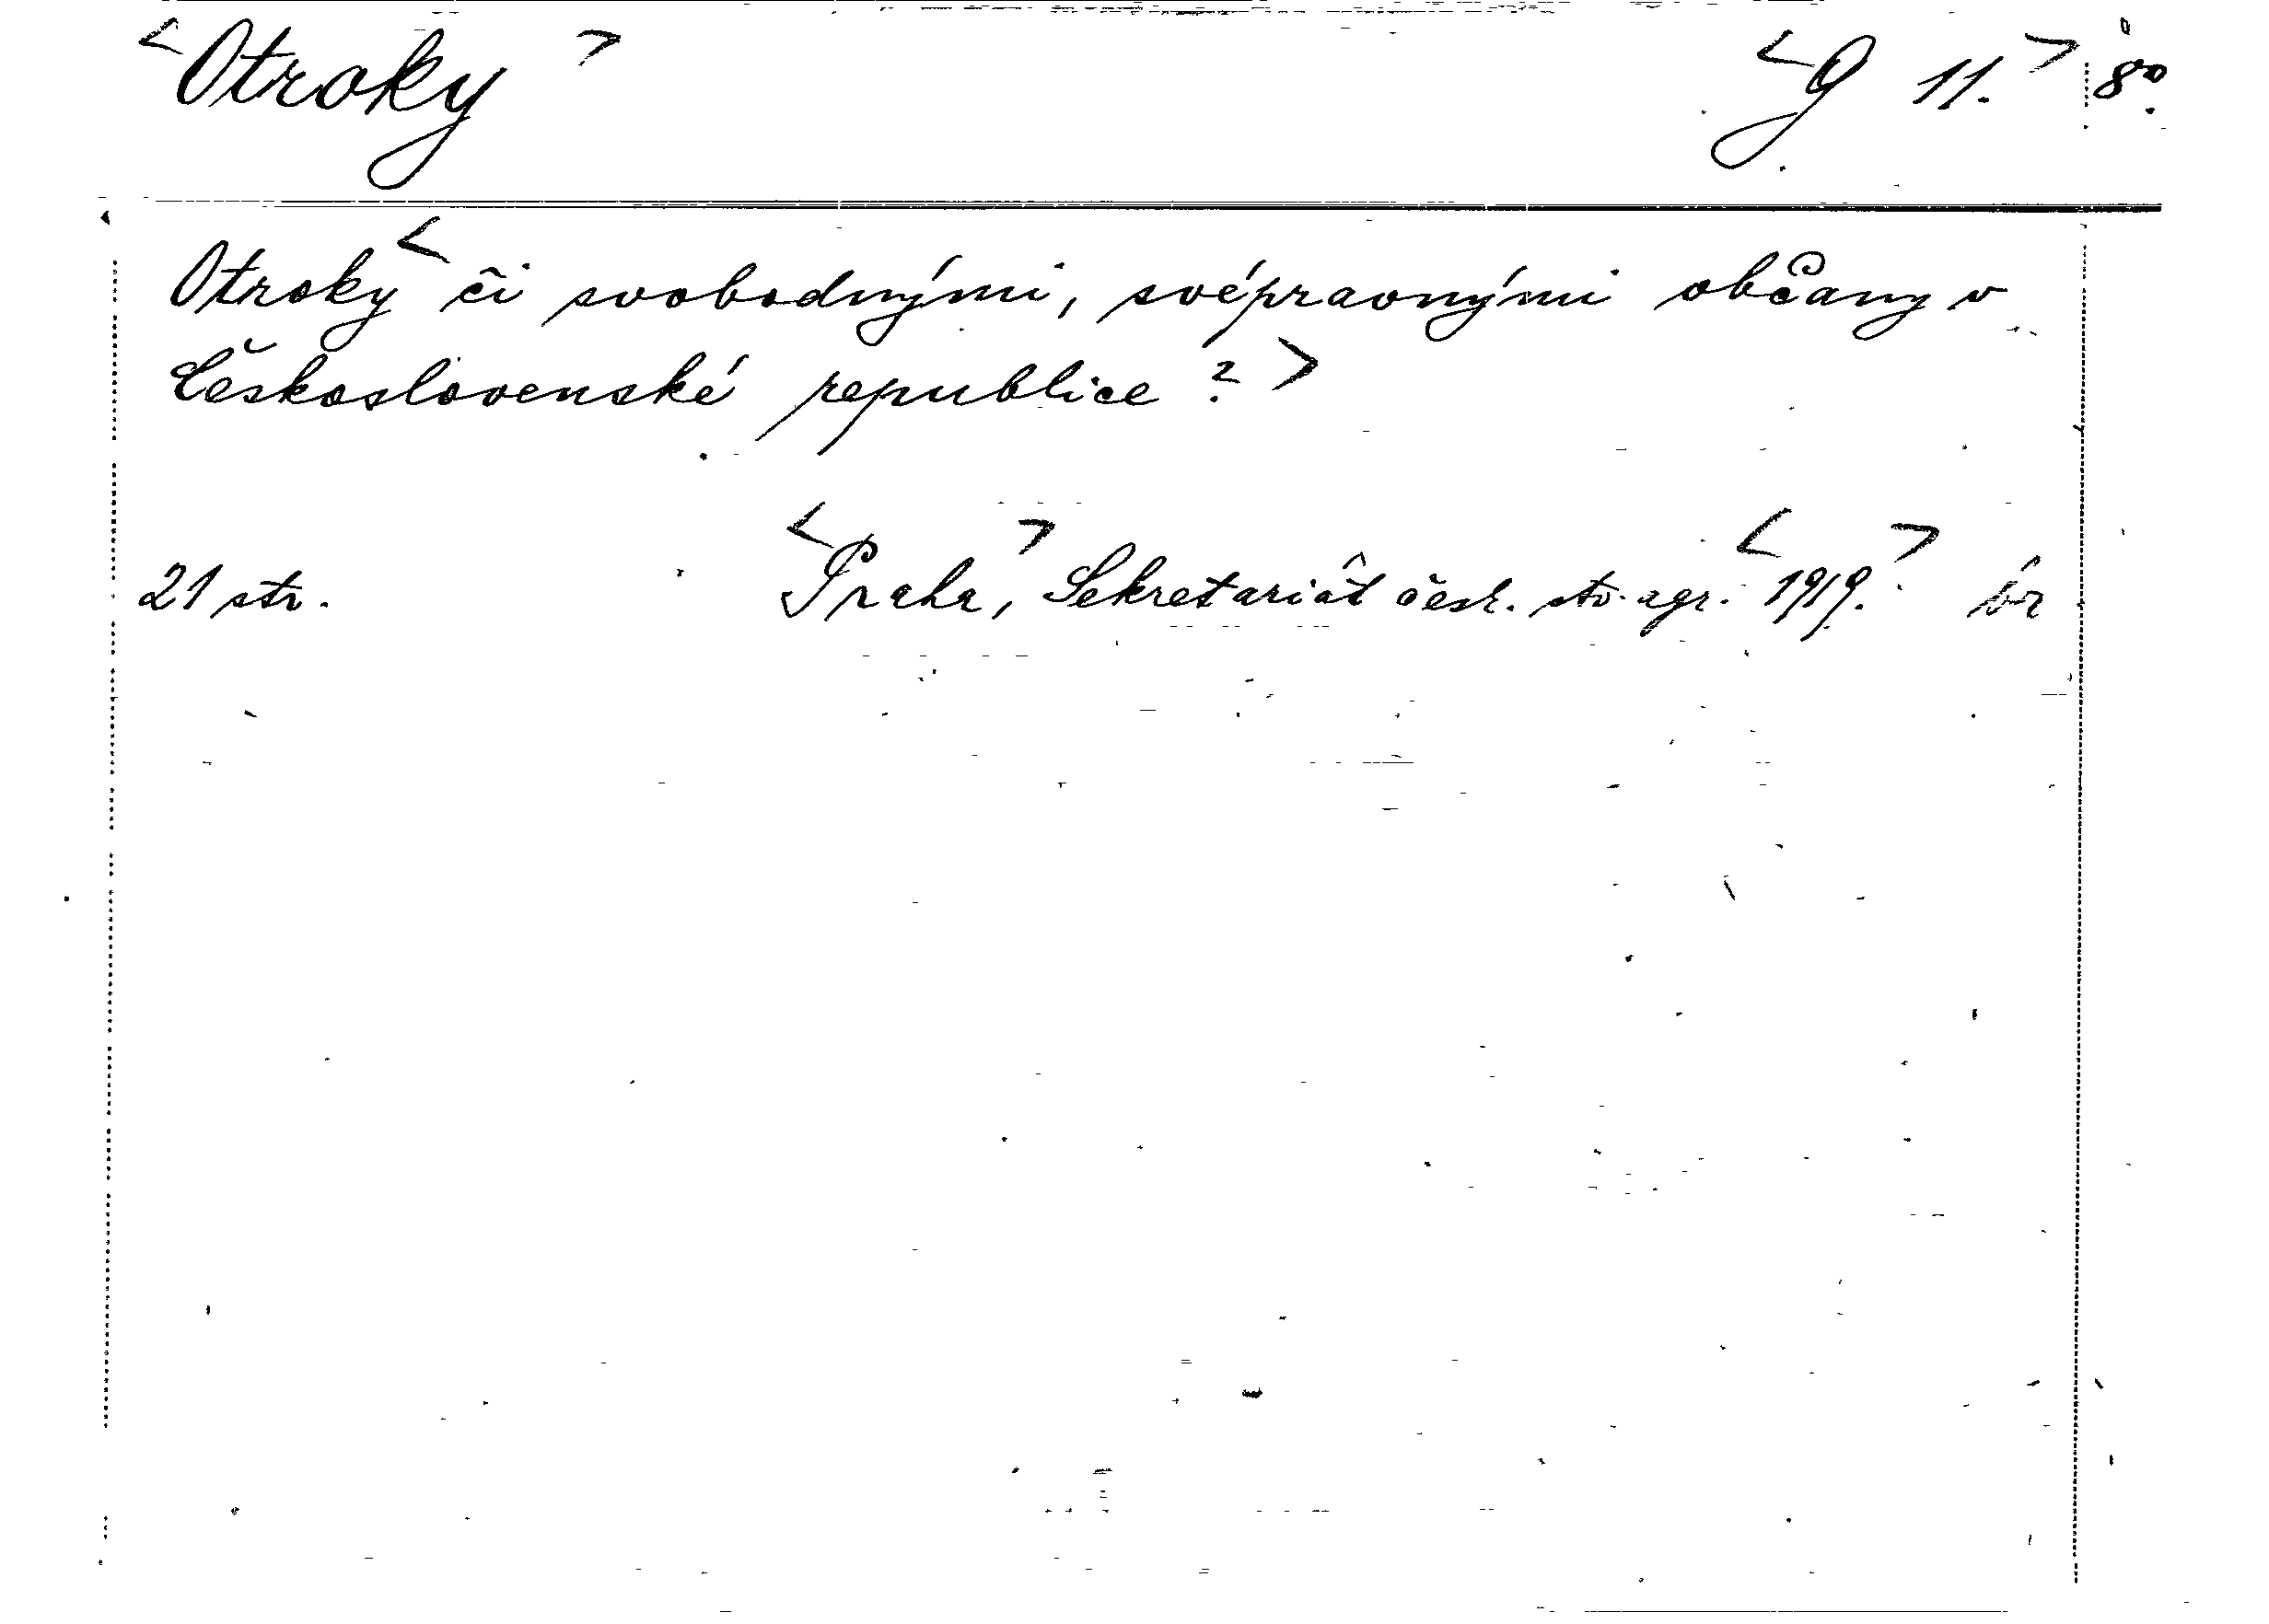 <Otroky> <G 11.> 8°.
Otroky < či svobodnými, svéprávnými občany v
Československé republice? >
21 str. <Praha,> Sekretariát česk. str. agr. <1919.>